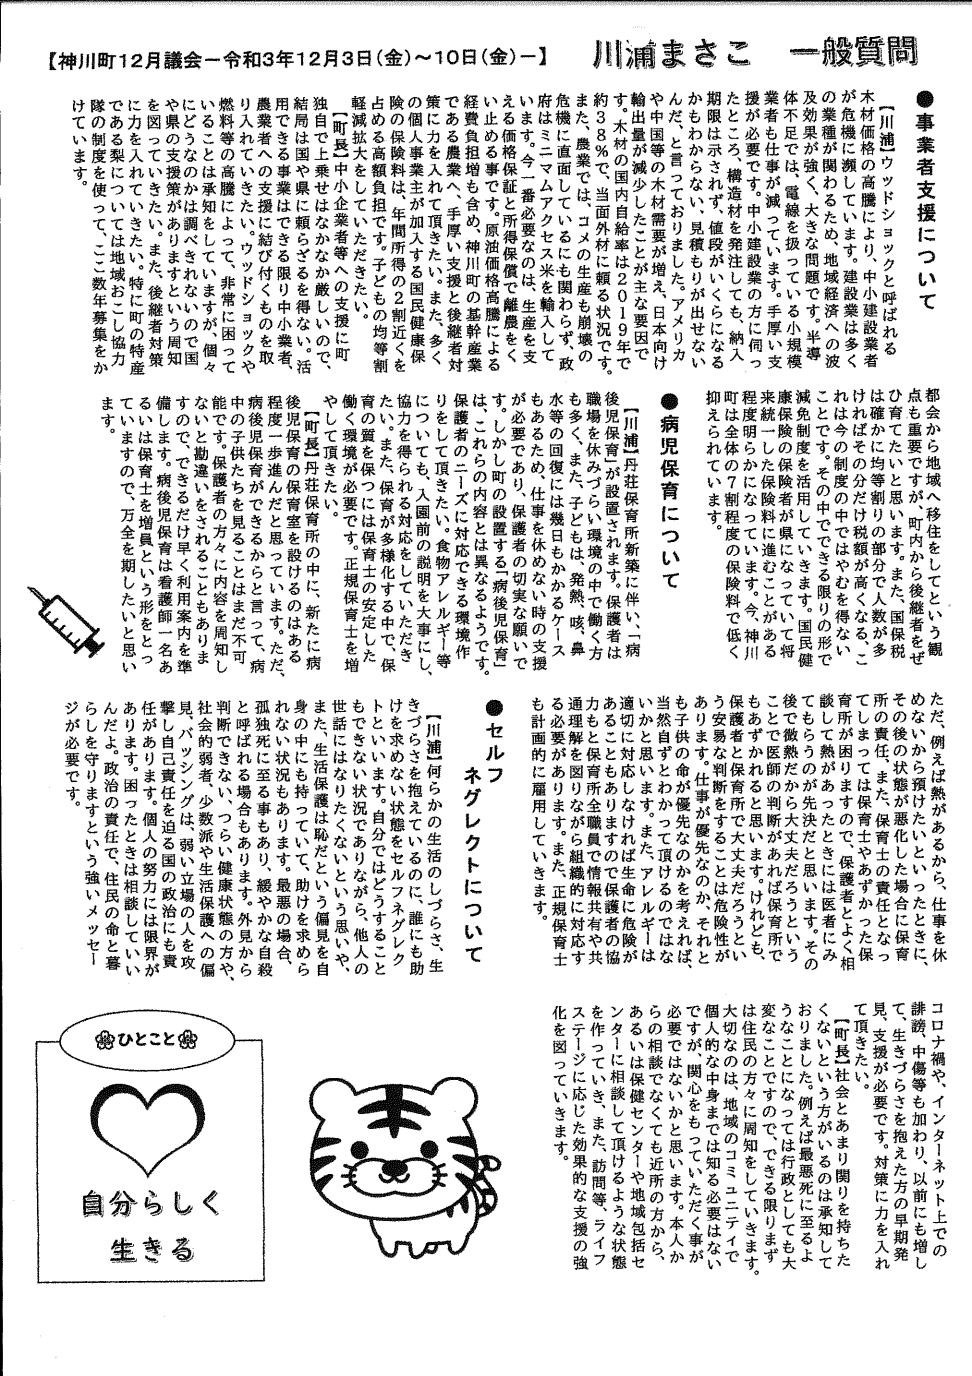 【神川町12月議会－令和3年12月3日(金)～10日(金)－】
川浦まさこ　一般質問
●事業者支援について
【川浦】ウッドショックと呼ばれる
木材価格の高騰により、中小建設業者
が危機に瀕しています。建設業は多く
の業種が関わるため、地域経済への波
及効果が強く、大きな問題です。半導
体不足では、電線を扱っている小規模
業者も仕事が減っています。手厚い支
援が必要です。中小建設業の方に伺っ
たところ、構造材を発注しても、納入
期限は示されず、値段がいくらになる
かもわからない、見積もりが出せない
んだ、と言っておりました。アメリカ
や中国等の木材需要が増え、日本向け
輸出量が減少したことが主な要因で
す。木材の国内自給率は2019年で
約38％で、当面外材に頼る状況です。
また、農業では、コメの生産も崩壊の
危機に直面しているにも関わらず、政
府はミニマムアクセス米を輸入して
います。今一番必要なのは、生産を支
える価格保証と所得保償で離農をく
い止める事です。原油価格高騰による
経費負担増も含め、神川町の基幹産業
である農業へ、手厚い支援と後継者対
策に力を入れて頂きたい。また、多く
の個人事業主が加入する国民健康保
険の保険料は、年間所得の2割近くを
占める高額負担です。子どもの均等割
軽減拡大をしていただきたい。
【町長】中小企業者等への支援に町
独自で上乗せはなかなか厳しいので、
結局は国や県に頼らざるを得ない。活
用できる事業はできる限り中小業者、
農業者への支援に結び付くものを取
り入れていきたい。ウッドショックや
燃料等の高騰によって、非常に困って
いることは承知をしていますが、個々
にどうなのかは調べきれないので国
や県の支援策がありますという周知
を図っていきたい。また、後継者対策
に力を入れていきたい。特に町の特産
である梨については地域おこし協力
隊の制度を使って、ここ数年募集をか
けています。
都会から地域へ移住をしてという観
点も重要ですが、町内から後継者をぜ
ひ育てたいと思います。また、国保税
は確かに均等割りの部分で人数が多
ければその分だけ税額が高くなる、こ
れは今の制度の中ではやむを得ない
ことです。その中でできる限りの形で
減免制度を活用していきます。国民健
康保険の保険者が県になっていて将
来統一した保険料に進むことがある
程度明らかになっています。今、神川
町は全体の7割程度の保険料で低く
抑えられています。
●病児保育について
【川浦】丹荘保育所新築に伴い、「病
後児保育」が設置されます。保護者は
職場を休みづらい環境の中で働く方
も多く、また、子どもは、発熱、咳、鼻
水等の回復には幾日もかかるケース
もあるため、仕事を休めない時の支援
が必要であり、保護者の切実な願いで
す。しかし町の設置する「病後児保育」
は、これらの内容とは異なるようです。
保護者のニーズに対応できる環境作
りをして頂きたい。食物アレルギー等
についても、入園前の説明を大事にし、
協力を得られる対応をしていただき
たい。また、保育が多様化する中で、保
育の質を保つには保育士の安定した
働く環境が必要です。正規保育士を増
やして頂きたい。
【町長】丹荘保育所の中に、新たに病
後児保育の保育室を設けるのはある
程度一歩進んだと思っています。ただ、
病後児保育ができるからと言って、病
中の子供たちを見ることはまだ不可
能です。保護者の方々に内容を周知し
ないと勘違いをされることもありま
すので、できるだけ早く利用案内を準
備します。病後児保育は看護師一名あ
るいは保育士を増員という形をとっ
ていますので、万全を期したいと思い
ます。
ただ、例えば熱があるから、仕事を休
めないから預けたいといったときに、
その後の状態が悪化した場合に保育
所の責任、また、保育士の責任となっ
てしまっては保育士やあずかった保
育所が困りますので、保護者とよく相
談して熱があったときには医者にみ
てもらうのが先決だと思います。その
後で微熱だから大丈夫だろうという
ことで医師の判断があれば保育所で
もあずかれると思います。けれども、
保護者と保育所で大丈夫だろうとい
う安易な判断をすることは危険性が
あります。仕事が優先なのか、それと
も子供の命が優先なのかを考えれば、
当然自ずとわかって頂けるのではな
いかと思います。また、アレルギーは
適切に対応しなければ生命に危険が
あることもありますので保護者の協
力もと保育所全職員で情報共有や共
通理解を図りながら組織的に対応す
る必要があります。また、正規保育士
も計画的に雇用していきます。
●セルフ
ネグレクトについて
【川浦】何らかの生活のしづらさ、生
きづらさを抱えているのに、誰にも助
けを求めない状態をセルフネグレク
トといいます。自分ではどうすること
もできない状況でありながら、他人の
世話にはなりたくないという思いや、
また、生活保護は恥だという偏見を自
身の中にも持っていて、助けを求めら
れない状況もあります。最悪の場合、
孤独死に至る事もあり、緩やかな自殺
と呼ばれる場合もあります。外見から
判断できない、つらい健康状態の方や、
社会的弱者、少数派や生活保護への偏
見、バッシングは、弱い立場の人を攻
撃し自己責任を迫る国の政治にも責
任があります。個人の努力には限界が
あります。困ったときは相談していい
んだよ。政治の責任で、住民の命と暮
らしを守りますという強いメッセー
ジが必要です。
コロナ禍や、インターネット上での
誹謗、中傷等も加わり、以前にも増し
て、生きづらさを抱えた方の早期発
見、支援が必要です。対策に力を入れ
て頂きたい。
【町長】社会とあまり関りを持ちた
くないという方がいるのは承知して
おりました。例えば最悪死に至るよ
うなことになっては行政としても大
変なことですので、できる限りまず
は住民の方々に周知をしていきます。
大切なのは、地域のコミュニティで
個人的な中身までは知る必要はない
ですが、関心をもっていただく事が
必要ではないかと思います。本人か
らの相談でなくても近所の方から、
あるいは保健センターや地域包括セ
ンターに相談して頂けるような状態
を作っていき、また、訪問等、ライフ
ステージに応じた効果的な支援の強
化を図っていきます。
ひとこと
自分らしく
生きる